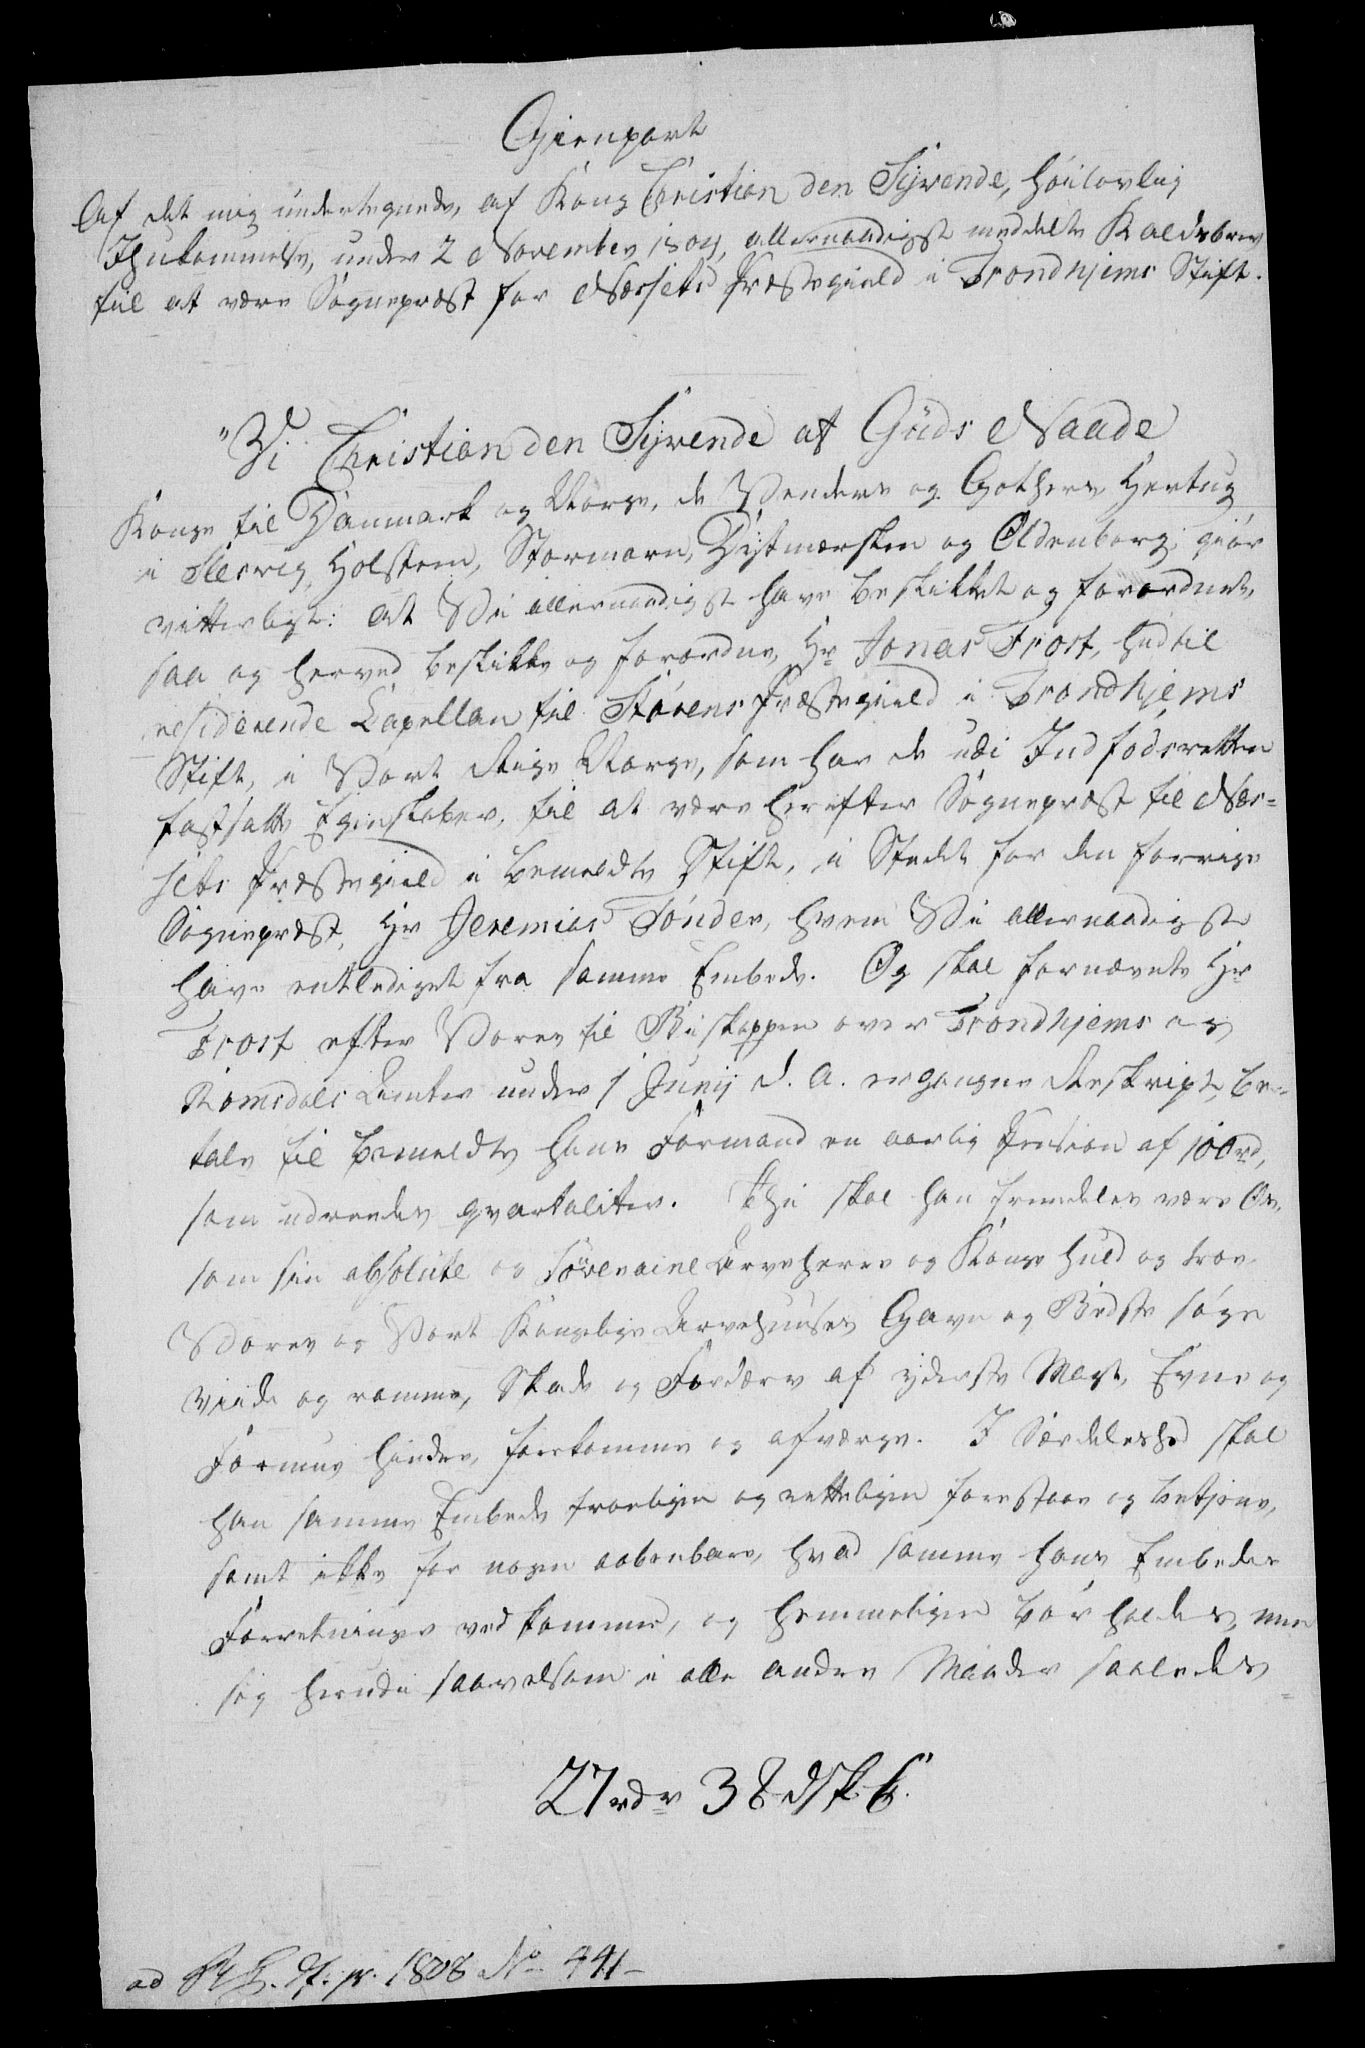 Gienpart
Af det mig undertegnede, af Kong Christian den Syvende, höilovlig
Ihukommelse, under 2 November 1804, allernaadigst meddelte Kaldsbrev
til at være Sognepræst for Næssets Præstegield i Trondhjems Stift.
"Vi Christian den Syvende af Guds Naade
Konge til Danmark og Norge, de Venders og Gothers, Hertug
i Slesvig, Holsteen, Stormarn, Dytmarsken og Oldenborg; giör
vitterligt: at Vi allernaadigst have beskikket og forordnet,
saa og herved beskikke og forordne, Hr Jonas Frost, hidtil
residerende Capellan til Störens Præstegield i Trondhjems
Stift, i Vort Rige Norge, som har de udi Indfödsretten
fastsatte Egenskaber, til at være herefter Sognepræst til Næs-
sets Præstegield i bemeldte Stift, i Stedet for den forrige
Sognepræst, Hr Jeremias Tönder, hvem Vi allernaadigst
have entlediget fra samme Embede. Og skal fornævnte Hr
Frost efter Vores til Biskoppen over Trondhjems og
Romsdals Amter under 1 Junij d. A. ergangne Reskript, be-
tale til bemeldte hans Formand en aarlig Pension af 100rd,
som udredes qvartaliter. Thi skal han fremdeles være Os,
som sin absolute og souveraine Arveherre og Konge huld og troe
Vores og Vort Kongelige Arvehuuses Gavn og Bedste söge
vide og ramme, Skade og Fordærv af yderste Magt, Evne og
Formue hindre, forekomme og afværge. I Særdeleshed skal
han samme Embede troeligen og retteligen forestaae og betjene,
samt ikke for nogen aabenbare, hvad samme hans Embedes
Forretninger vedkommer, og hemmeligen bör holdes, men
sig herudi saavelsom i alle andre Maader saaledes
27 rdr 38 dsk 6.
ad 1808 No 441